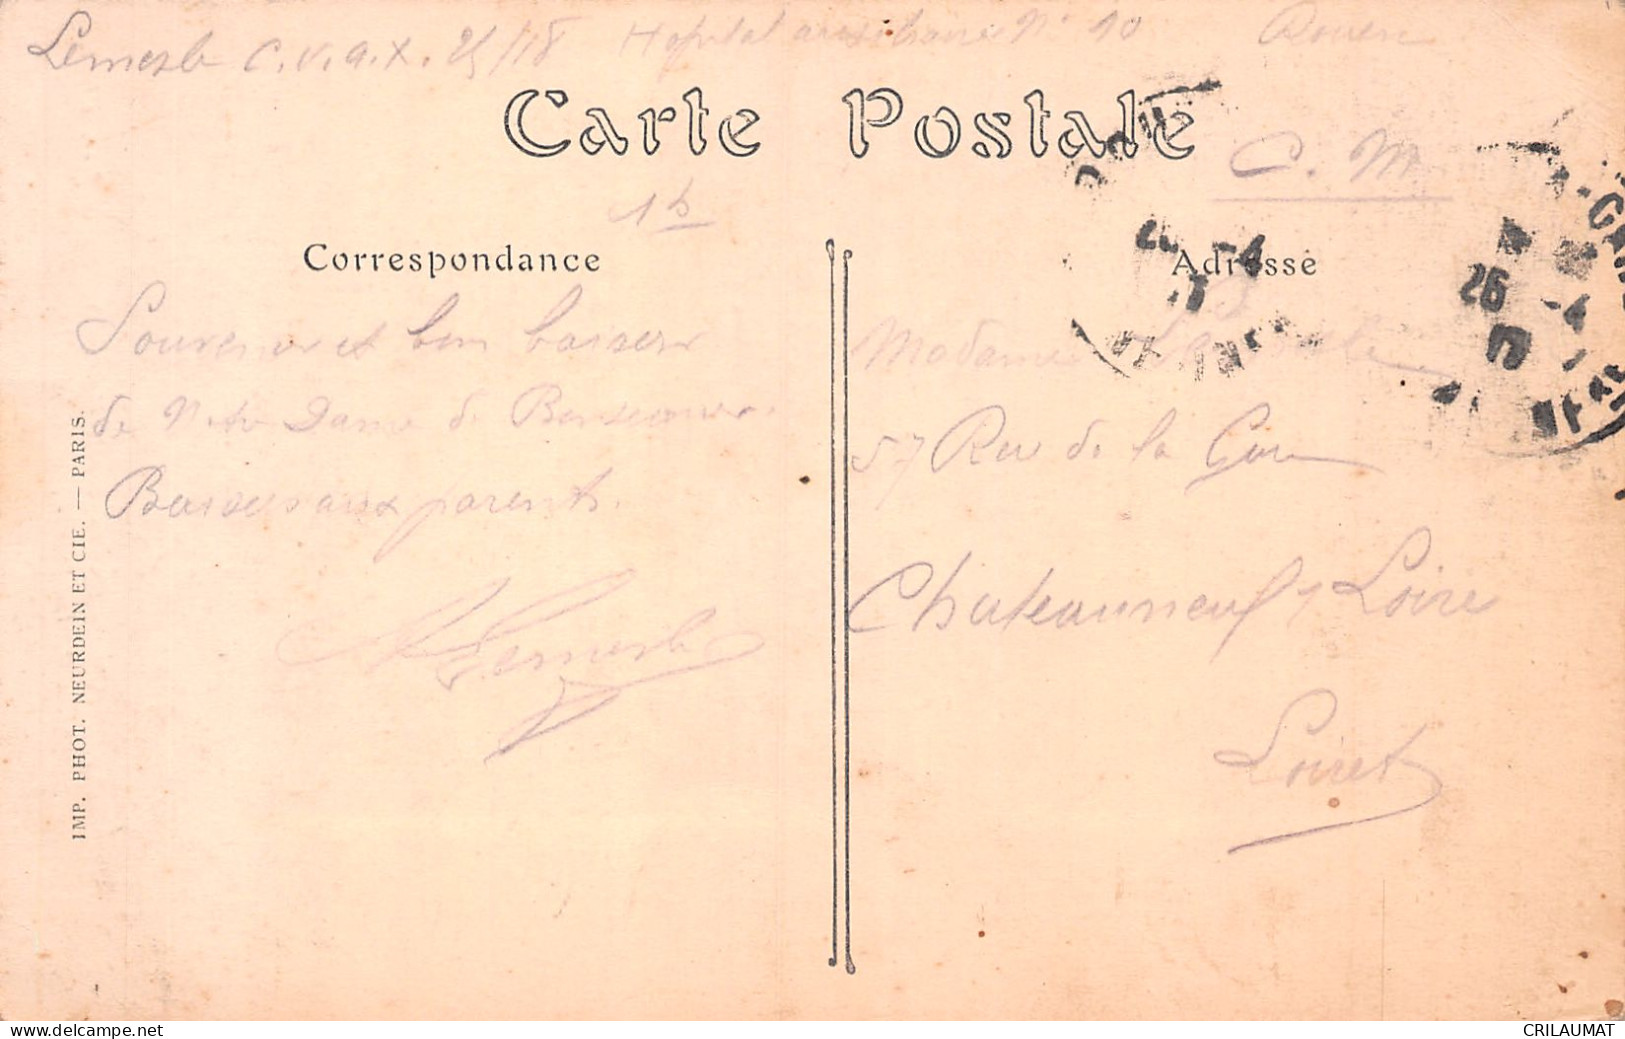 Lemesle C.V.A.X. 25/18 Hopital auxiliaire N° 10 Rouen
Carte Postale
C. M
15
Correspondance
Adresse
26 -4
Souvenir et bon baisers
de Notre Dame de Bonsecours.
Baisers aux parents.
Lemesle
Madame Lemesle
57 Rue de la Gare
Chateauneuf s/ Loire
Loiret
IMP. PHOT. NEURDEIN ET CIE. — PARIS.
www.delcampe.net
CRILAUMAT